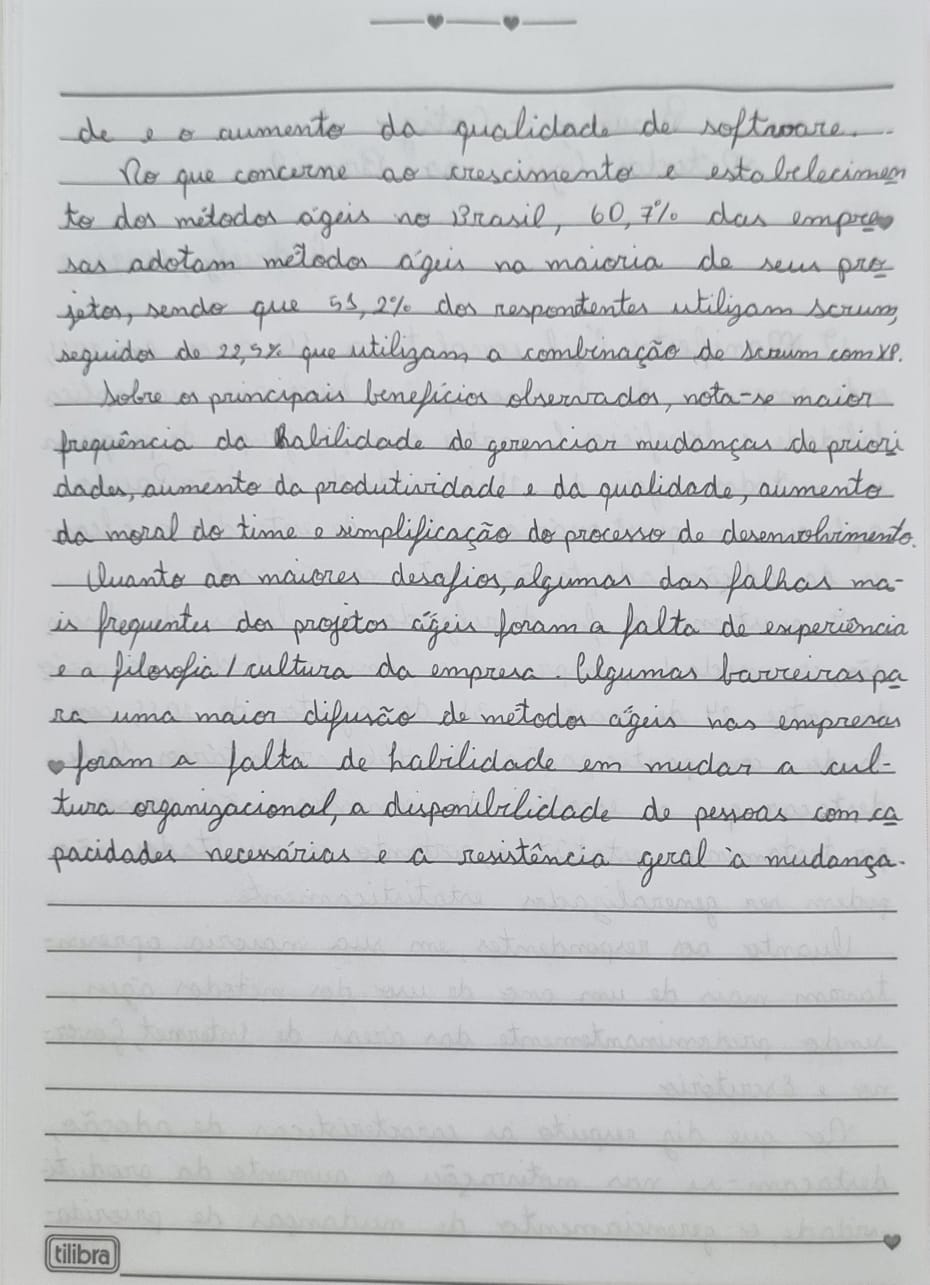 de e o aumento da qualidade de software.
No que concerne ao crescimento e estabelecimen
to dos métodos ágeis no Brasil, 60,7% das empre
sas adotam métodos ágeis na maioria de seus pro
jetos, sendo que 51,2% dos respondentes utilizam scrum,
seguidos de 22,5% que utilizam a combinação de Scrum com XP.
Sobre os principais benefícios observados, nota-se maior
frequência da habilidade de gerenciar mudanças de priori
dades, aumento da produtividade e da qualidade, aumento
da moral do time e simplificação do processo de desenvolvimento.
Quanto aos maiores desafios, algumas das falhas ma-
is frequentes dos projetos ágeis foram a falta de experiência
e a filosofia/cultura da empresa. Algumas barreiras pa
ra uma maior difusão de métodos ágeis nas empresas
foram a falta de habilidade em mudar a cul-
tura organizacional, a disponibilidade de pessoas com ca
pacidades necessárias e a resistência geral à mudança.
tilibra